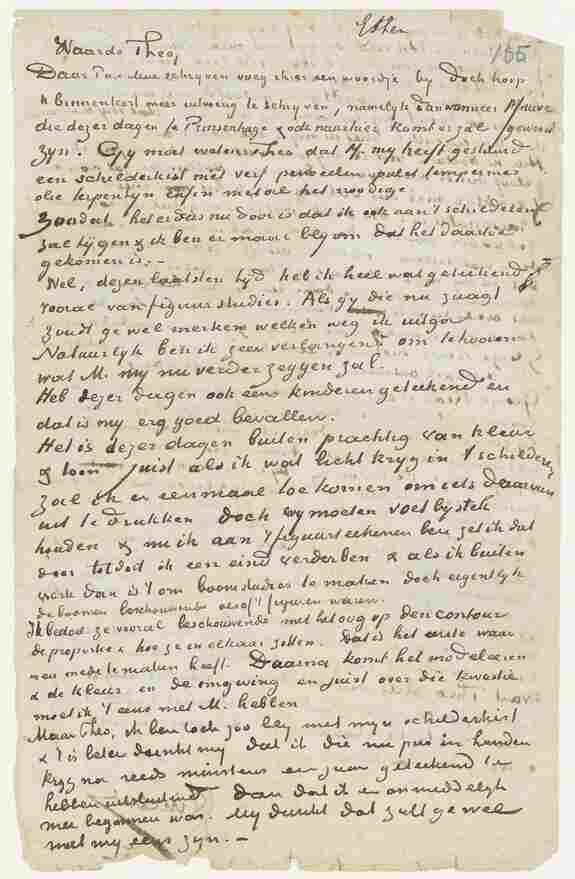 Etten
165
Waarde Theo,
Daar Pa & Moe schrijven voeg ik hier een woordje by doch hoop
U binnenkort meer uitvoerig te schrijven, namelyk dan wanneer M Mauve
die dezer dagen te Prinsenhage & ook naar hier komt er zal geweest
zyn. Gy moet weten Theo dat M. my heeft gestuurd
een schilderkist met verf penseelen palet tempermes
olie terpentyn enfin met al het noodige.
Zoodat het er dus nu door is dat ik ook aan 't schilderen
zal tijgen & ik ben er maar bly om dat het daartoe
gekomen is. –
Wel, dezen laatsten tyd heb ik heel wat geteekend
vooral van figuurstudies. Als gy die nu zaagt
zoudt ge wel merken welken weg ik uitga
Natuurlyk ben ik zeer verlangend om te hooren
wat M. my nu verder zeggen zal.
Heb dezer dagen ook eens kinderen geteekend en
dat is my erg goed bevallen.
Het is dezer dagen buiten prachtig van kleur
& toon juist als ik wat licht kryg in 't schilderen
zal ik er eenmaal toe komen om iets daarvan
uit te drukken doch wy moeten voet by stek
houden & nu ik aan 't figuurteekenen ben zet ik dat
door totdat ik een eind verder ben & als ik buiten
werk dan is 't om boomstudies te maken doch eigentlyk
de boomen beschouwende alsof 't figuren waren.
Ik bedoel ze vooral beschouwende met het oog op den contour
de proportie & hoe ze in elkaar zitten. Dat is het eerste waar
men mede te maken heeft. Daarna komt het modeleeren
& de kleur en de omgeving en juist over die kwestie
moet ik 't eens met M. hebben
Maar Theo, ik ben toch zoo bly met myn schilderkist
& 't is beter dunkt my dat ik die nu pas in handen
kryg na reeds minstens een jaar geteekend te
hebben uitsluitend dan dat ik er onmiddelyk
mee begonnen was. My dunkt dat zult ge wel
met my eens zyn. –